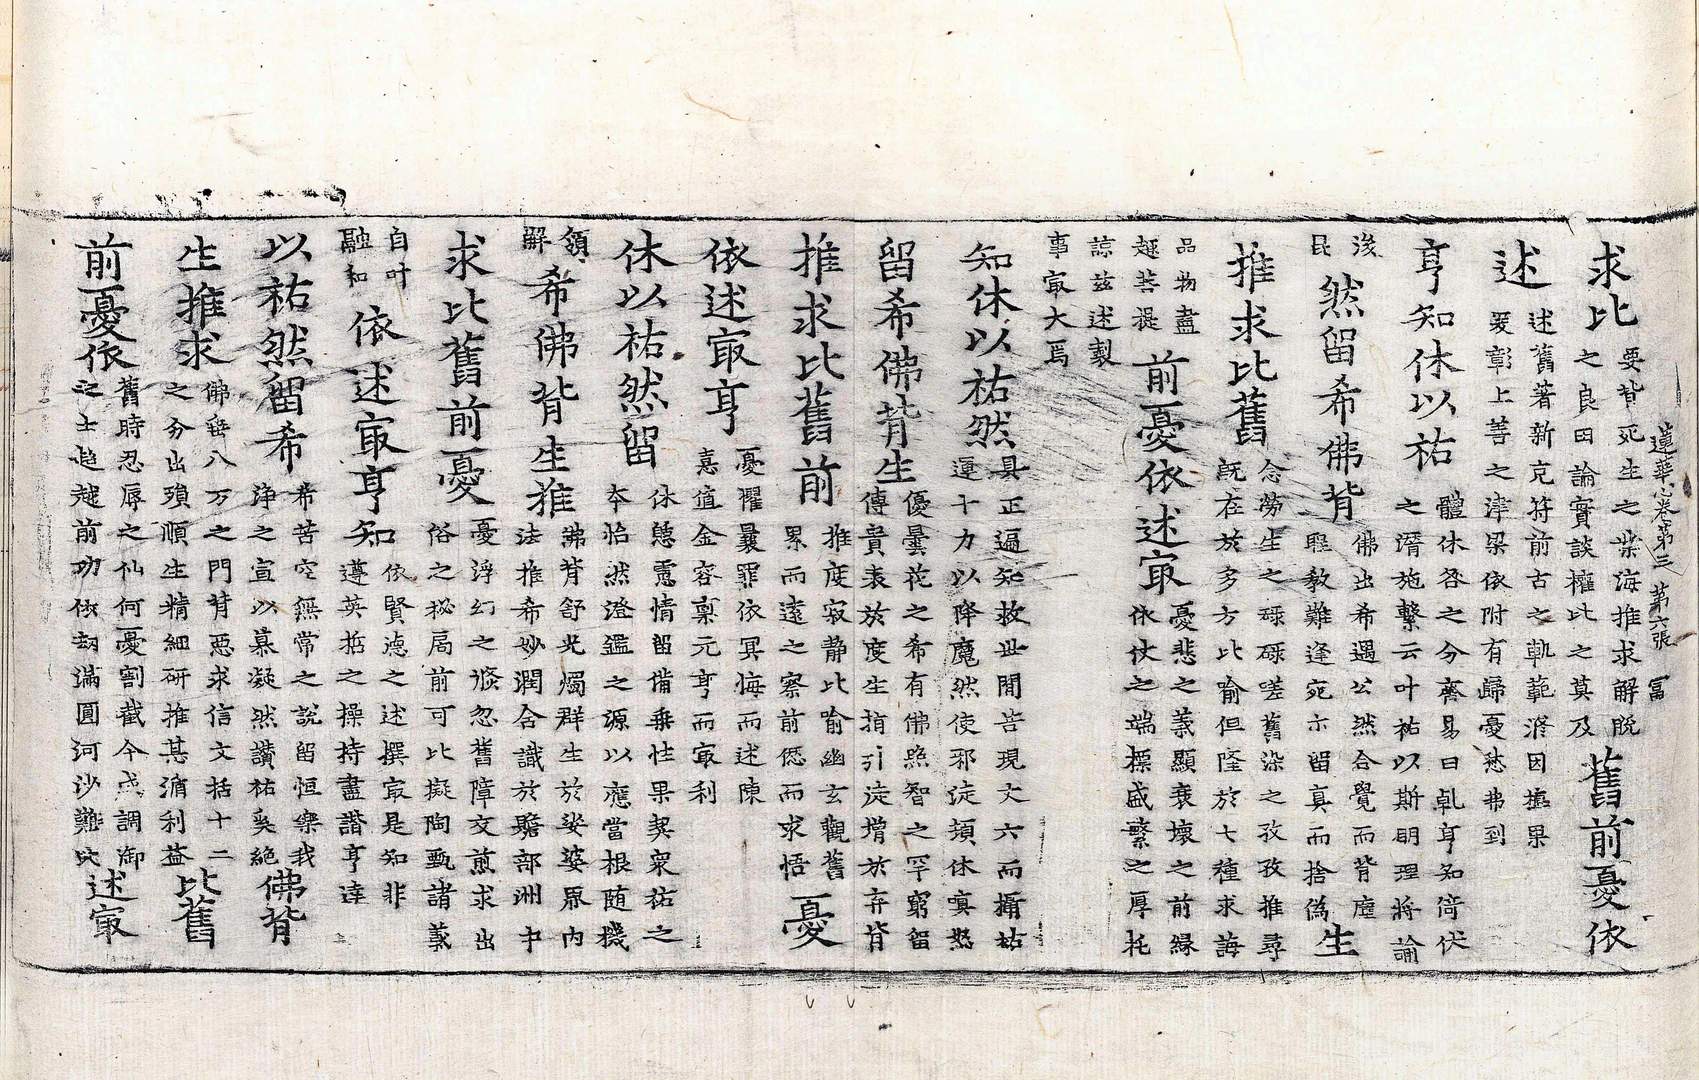 蓮華心卷第三 第六張 冨
求比
要背死生之業海推求解脫
之良因論實談權比之莫及
舊前憂依
述
述舊著新克符前古之軌範滌因擄果
爰彰上善之津梁依附有歸憂愁弗到
亨知休以祐
體休咎之分齊易曰乹亨知倚伏
之潛施繫云叶祐以斯明理將論
後
昆
然留希佛背
佛出希遇公然合覺而背塵
聖教難逢宛尓留真而捨偽
生
推求比舊
念勞生之碌碌嗟舊染之孜孜推尋
旣在於多方比喻但隆於七種求誨
品物盡
趣菩提
前憂依述㝡
憂悲之義顯衰壞之前緣
依仗之端標盛繁之厚托
諒茲述製
事㝡大焉
知休以祐然
具正遍知救世間苦現丈六而攝祐
運十力以降魔然使邪徒頓休嗔怒
留希佛背生
優曇花之希有佛照智之罕窮留
傳貴表於度生指引徒增於弃背
推求比舊前
推度寂靜比喻幽玄觀舊
累而遠之察前愆而求悟
憂
依述㝡亨
憂懼曩罪依冥悔而述陳
憙值金容稟元亨而㝡利
休以祐然留
休慼慝情留備乗性果契衆祐之
本怡然澄鑑之源以應當根随機
領
解
希佛背生推
佛背舒光燭群生於娑婆界內
法推希妙潤含識於贍部洲中
求比舊前憂
憂浮幻之倏忽舊障交煎求出
俗之秘局前可比擬陶甄諸義
自叶
融和
依述㝡亨知
依賢德之述撰㝡是知非
遵英哲之操持盡諧亨達
以祐然留希
希苦空無常之說留恒樂我
淨之宣以慕凝然讚祐奚絕
佛背
生推求
佛垂八万之門背惡求信文括十二
之分出殞順生精細研推甚滋利益
比舊
前憂依
舊時忍辱之仙何憂割截今爲調御
之士趍越前功依刼滿圓河沙難比
述㝡